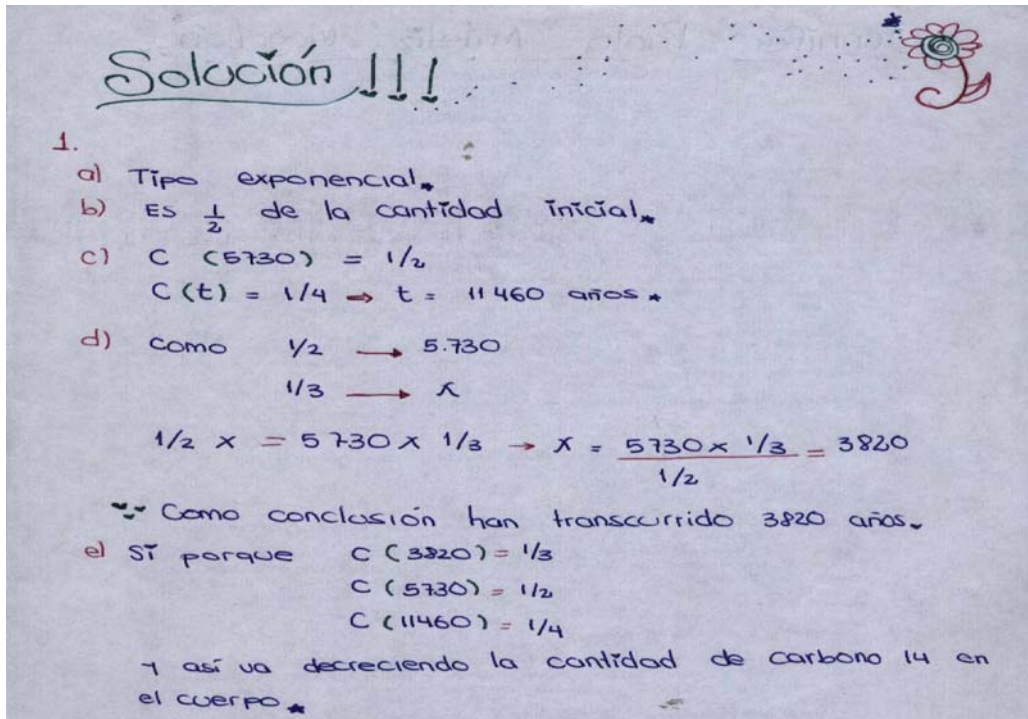 Solución !!!
1.
a) Tipo exponencial.
b) Es 1/2 de la cantidad inicial.
c) C (5730) = 1/2
C(t) = 1/4 → t = 11460 años.
d) Como 1/2 → 5.730
1/3 → x
1/2 x = 5730 x 1/3 → x = 5730 x 1/3 / 1/2 = 3820
Como conclusión han transcurrido 3820 años.
e) Sí porque C (3820) = 1/3
C (5730) = 1/2
C (11460) = 1/4
y así va decreciendo la cantidad de carbono 14 en
el cuerpo.